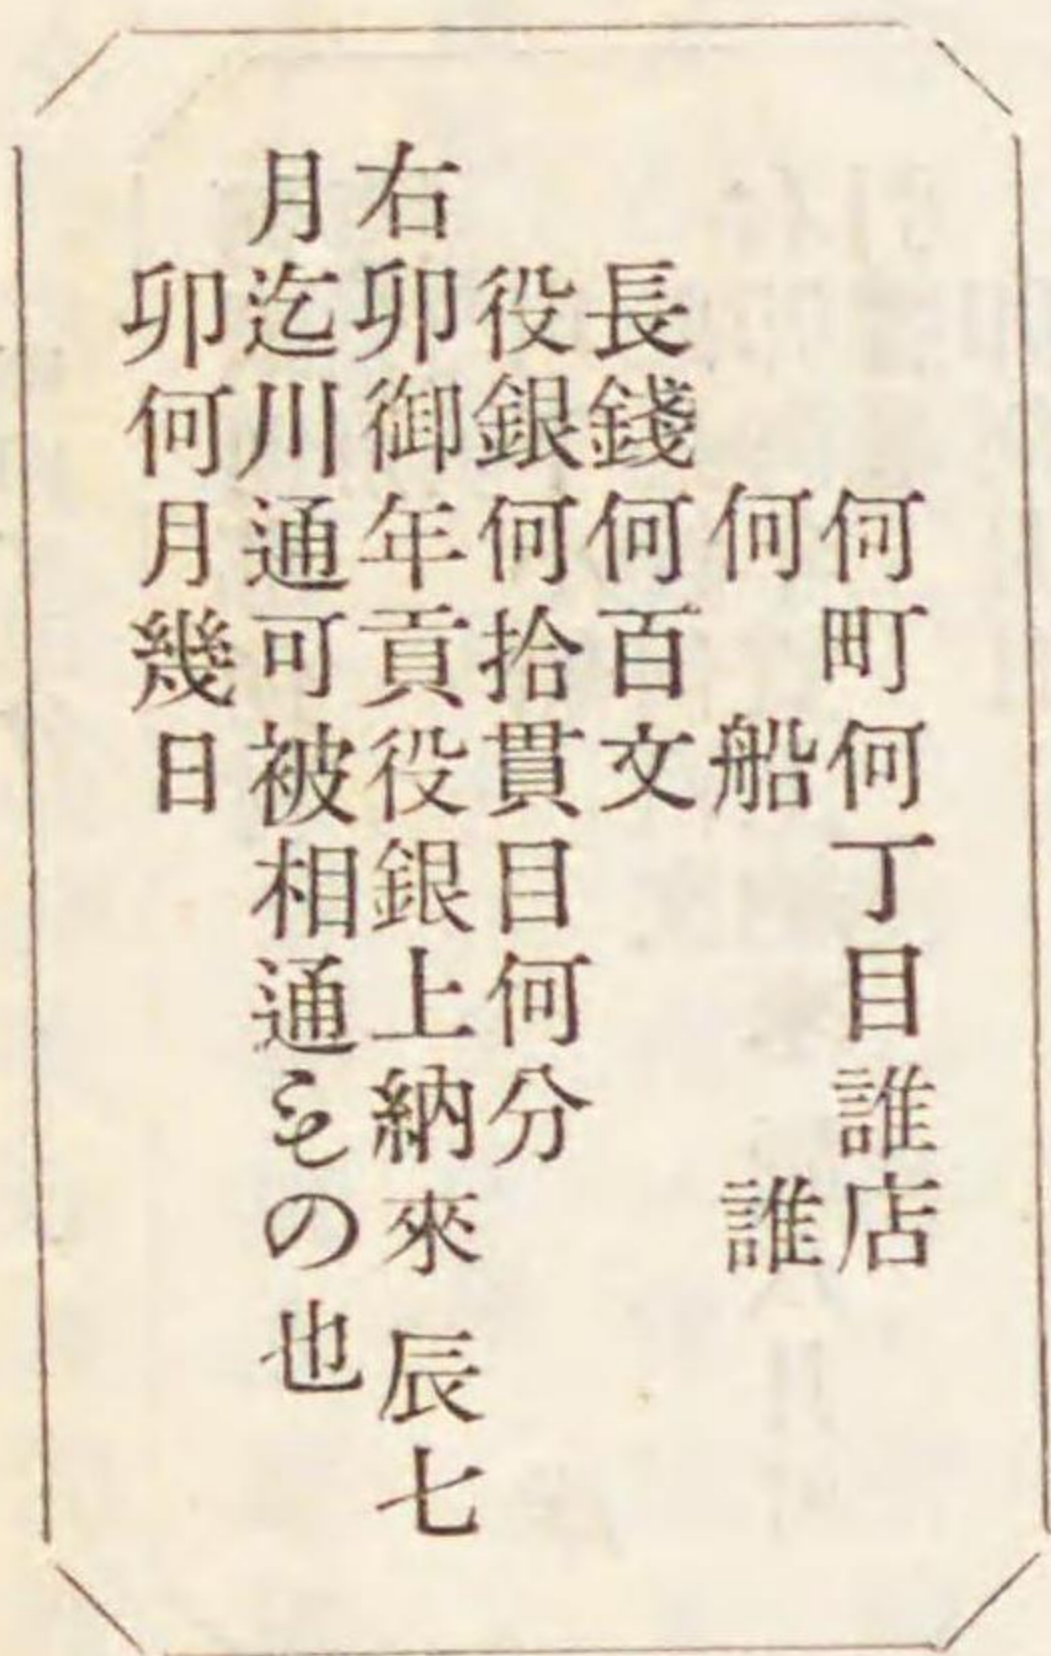 何町何丁目誰店
何船誰
長錢何百文
役銀何拾貫目何分
右卯御年貢役銀上納來辰七
月迄川通可被相通もの也
卯何月幾日